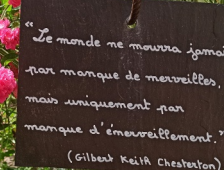 "Le monde ne mourra jamai
par manque de merveilles,
mais uniquement par
manque d'émerveillement."
(Gilbert Keith Chesterton)